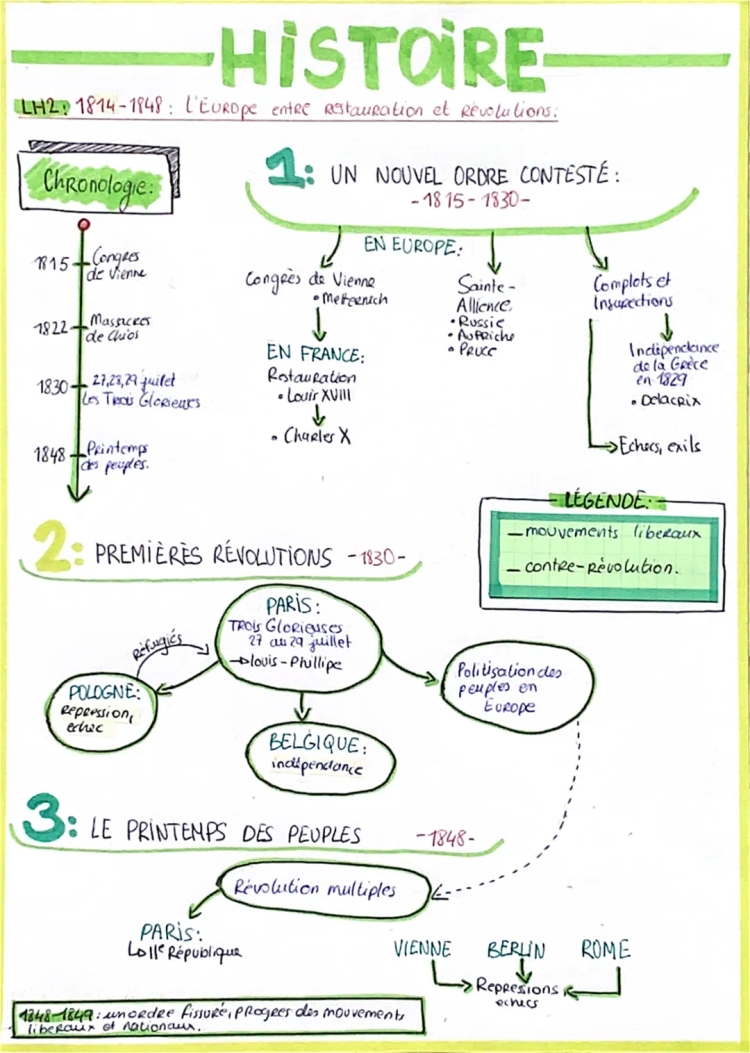 HISTOIRE
LH2: 1814-1848: l'Europe entre restauration et révolutions:
Chronologie:
1815 Congres
de Vienne
1822 Massacres
de Chios
1830 27,28,29 juillet
Les Trois Glorieuses
1848 Printemps
des peuples.
1: UN NOUVEL ORDRE CONTESTÉ:
-1815-1830-
EN EUROPE:
Congrès de Vienne
• Metternich
EN FRANCE:
Restauration
• Louis XVIII
• Charles X
Sainte-
Allience
• Russie
• Autriche
• Prucc
Complots et
Insurections
Indépendance
de la Grèce
en 1829
• Delacrix
Echecs, exils
LÉGENDE:
_ mouvements liberaux
_ contre-révolution.
2: PREMIÈRES RÉVOLUTIONS -1830-
PARIS:
TROIS Glorieuses
27 au 29 juillet
→ louis-Phllipe
Réfugiés
POLOGNE:
repression,
echec
BELGIQUE:
indépendance
Politisation des
peuples en
Europe
3: LE PRINTEMPS DES PEUPLES -1848-
Révolution multiples
PARIS:
↳ IIe République
VIENNE BERLIN ROME
Represions,
echecs
1848-1849: un ordre fissuré, progres des mouvements
liberaux et nationaux.